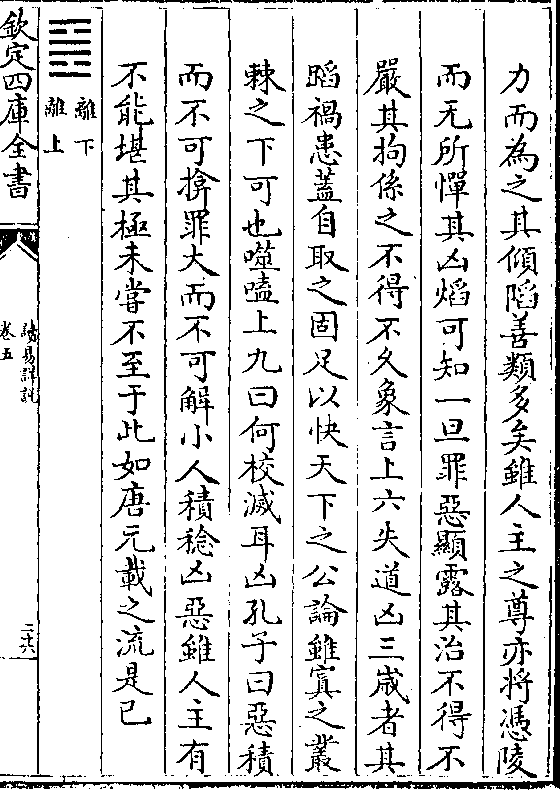 力而為之其傾陷善類多矣雖人主之尊亦將憑陵
而无所憚其凶焰可知一旦罪惡顯露其治不得不
嚴其拘係之不得不久象言上六失道凶三歲者其
蹈禍患蓋自取之固足以快天下之公論雖寘之叢
棘之下可也噬嗑上九曰何校滅耳凶孔子曰惡積
而不可揜罪大而不可解小人積稔凶惡雖人主有
不能堪其極未嘗不至于此如唐元載之流是已
離下
離上
欽定四庫全書
讀易詳說
卷五
二十六